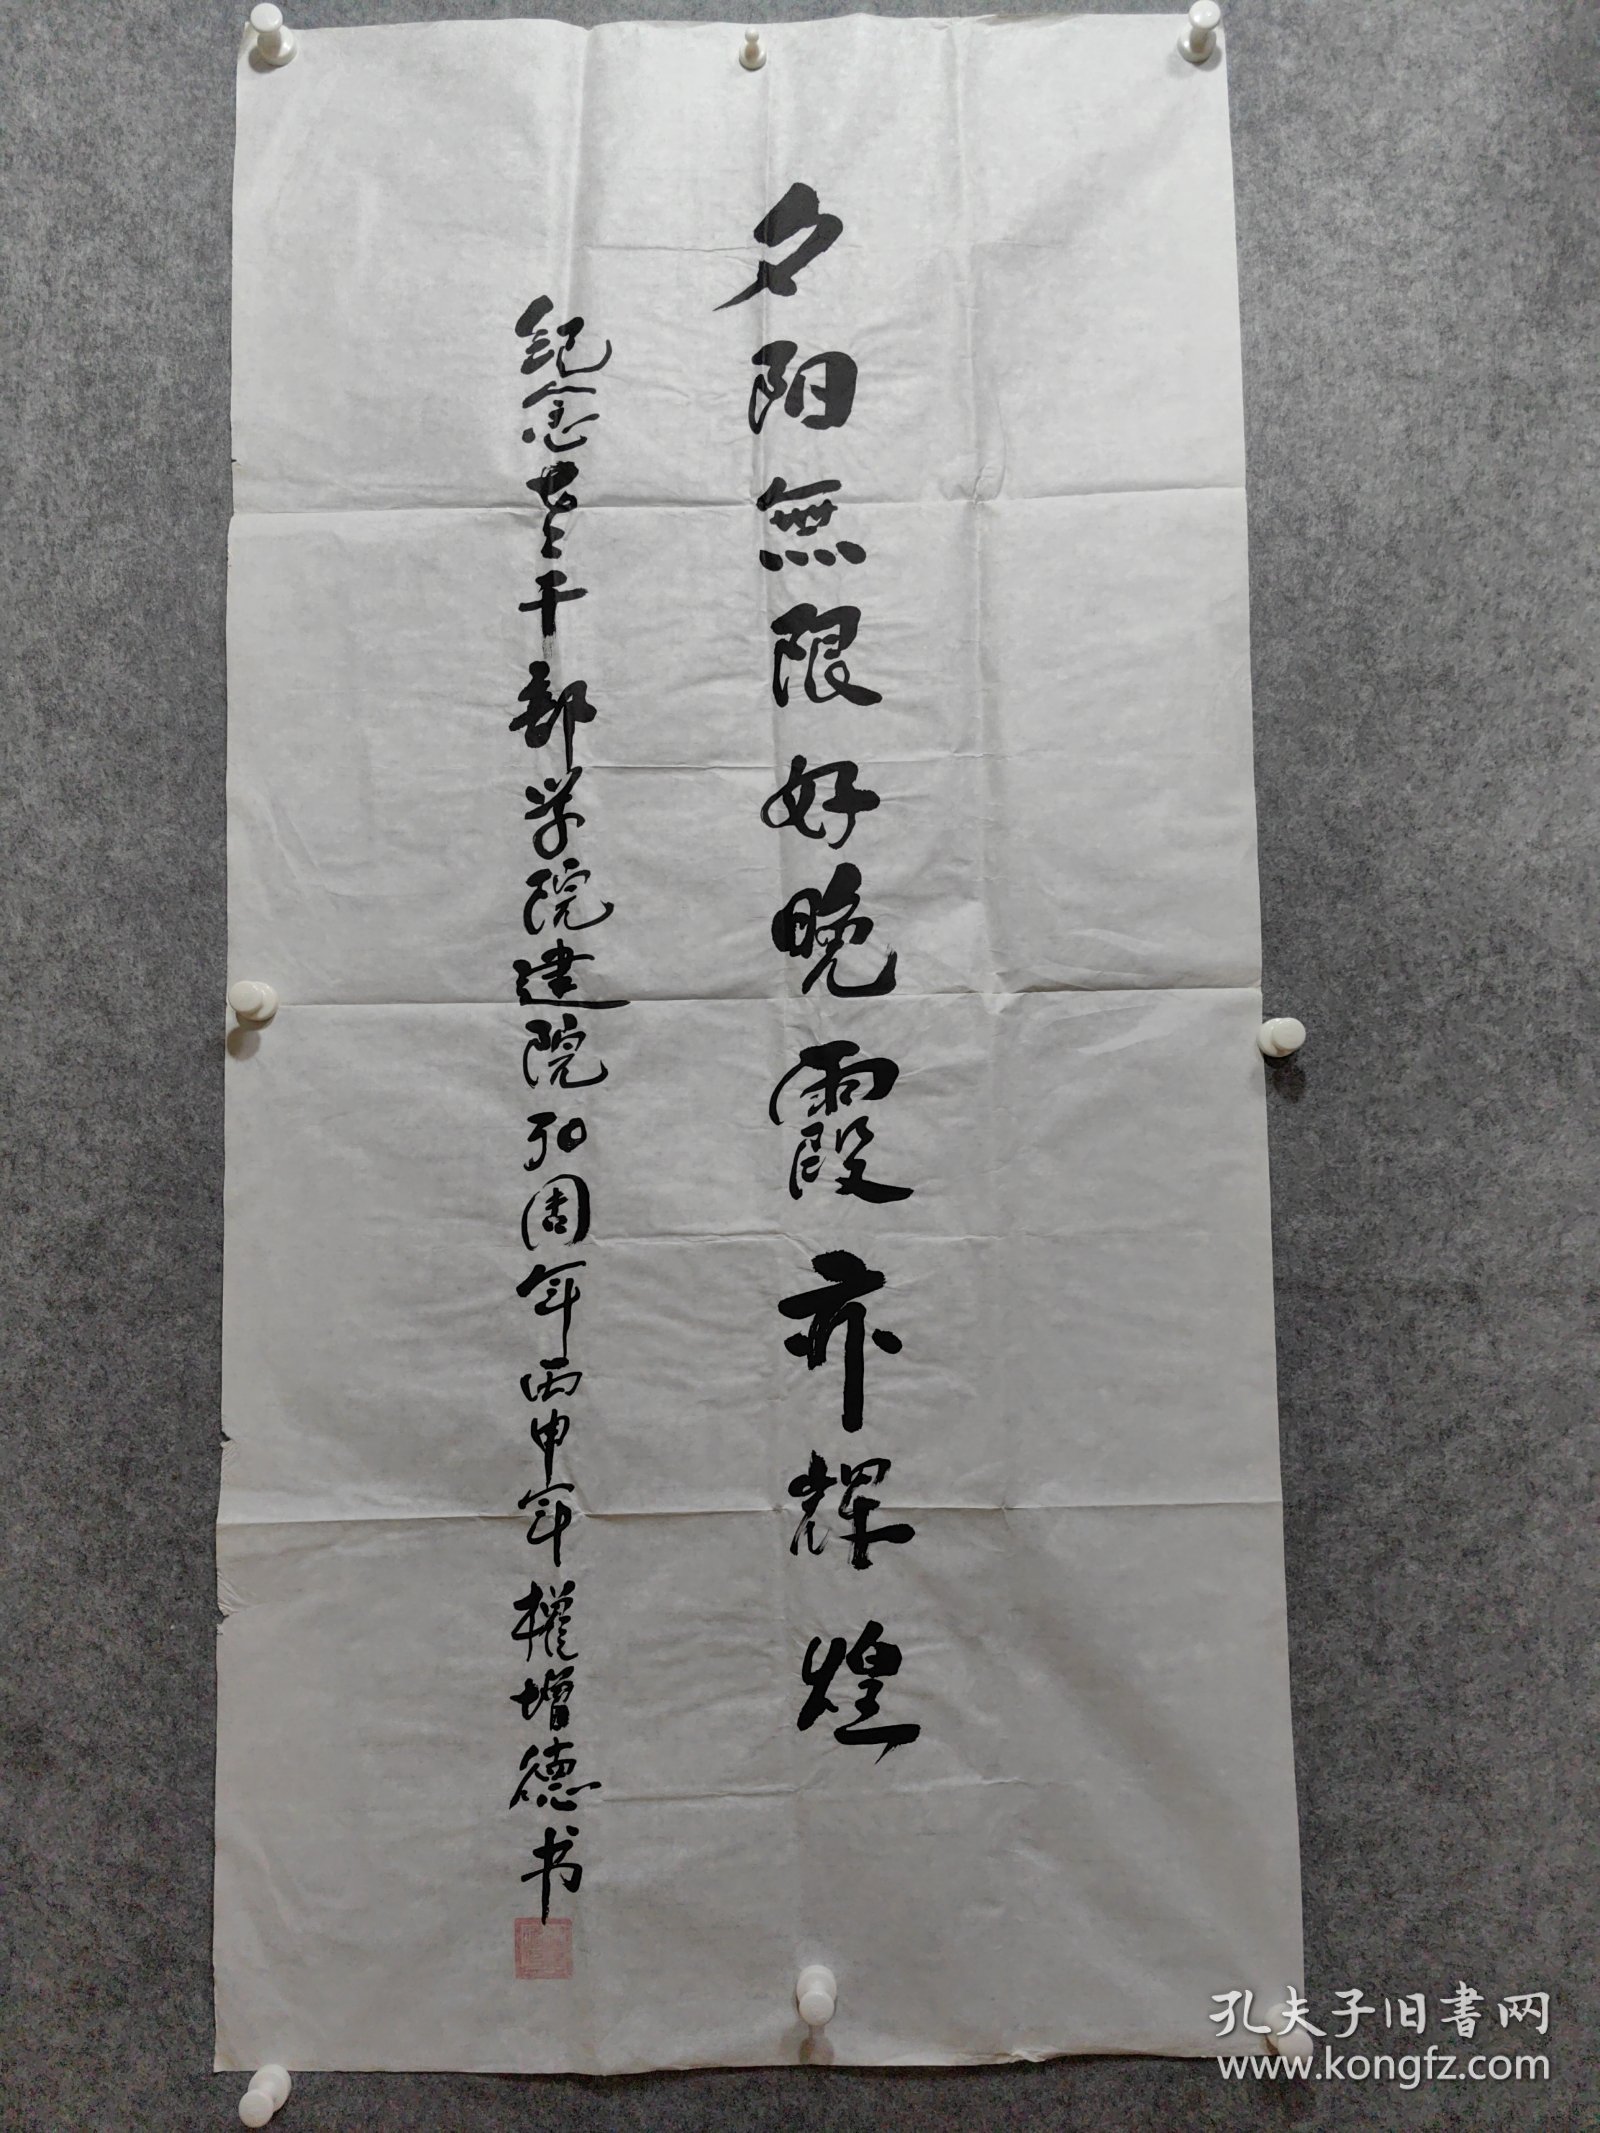 夕阳無限好晚霞亦辉煌
纪念老干部学院建院30周年丙申年權增德书
孔夫子旧書网
www.kongfz.com